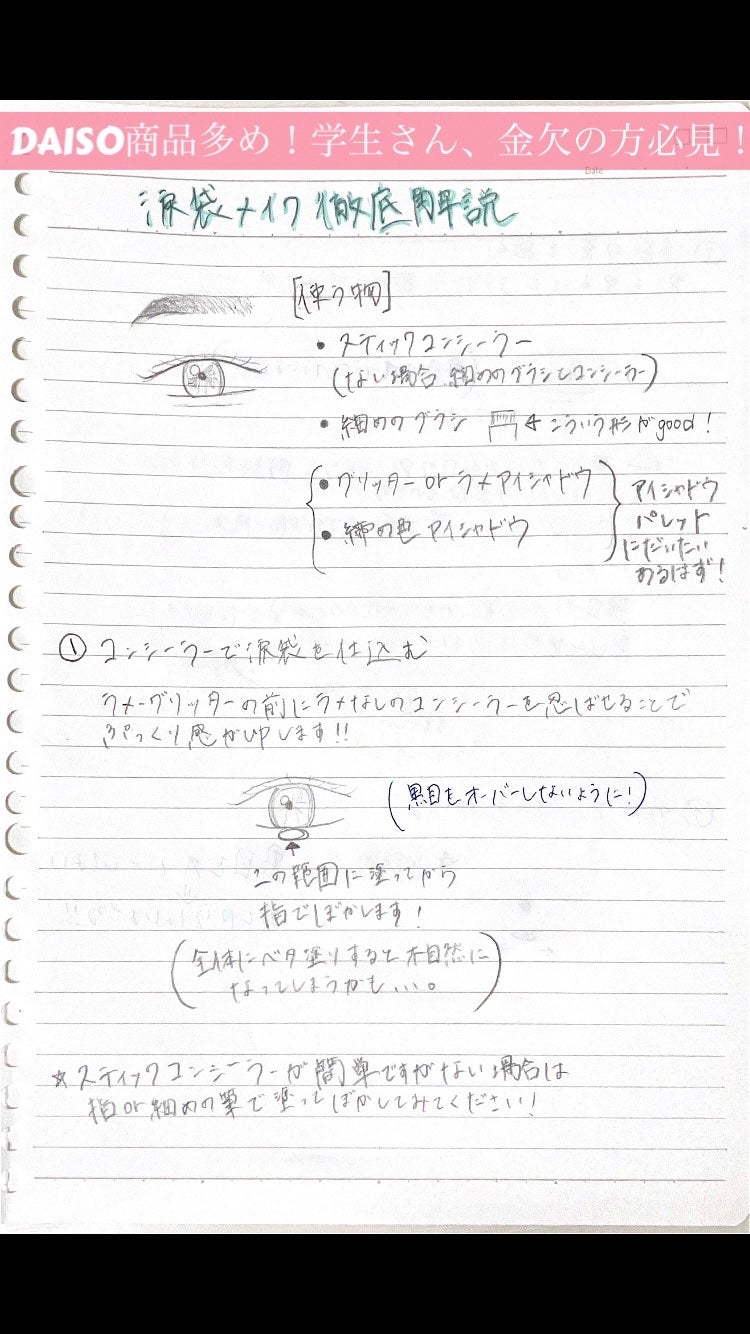 DAISO商品多め！学生さん、金欠の方必見！
Date
涙袋メイク 徹底解説
[使う物]
・スティックコンシーラー
(ない場合 細めのブラシとコンシーラー)
・細めのブラシ ← こういう形がgood！
・グリッターorラメアイシャドウ
・締め色アイシャドウ
アイシャドウ
パレット
にだいたい
あるはず！
① コンシーラーで涙袋を仕込む
ラメ・グリッターの前にラメなしのコンシーラーを忍ばせることで
ぷっくり感がUPします!!
(黒目をオーバーしないように！)
この範囲に塗ってから
指でぼかします！
(全体にベタ塗りすると不自然に
なってしまうかも...。)
☆スティックコンシーラーが簡単ですがない場合は
指or細めの筆で塗ってぼかしてみてください！